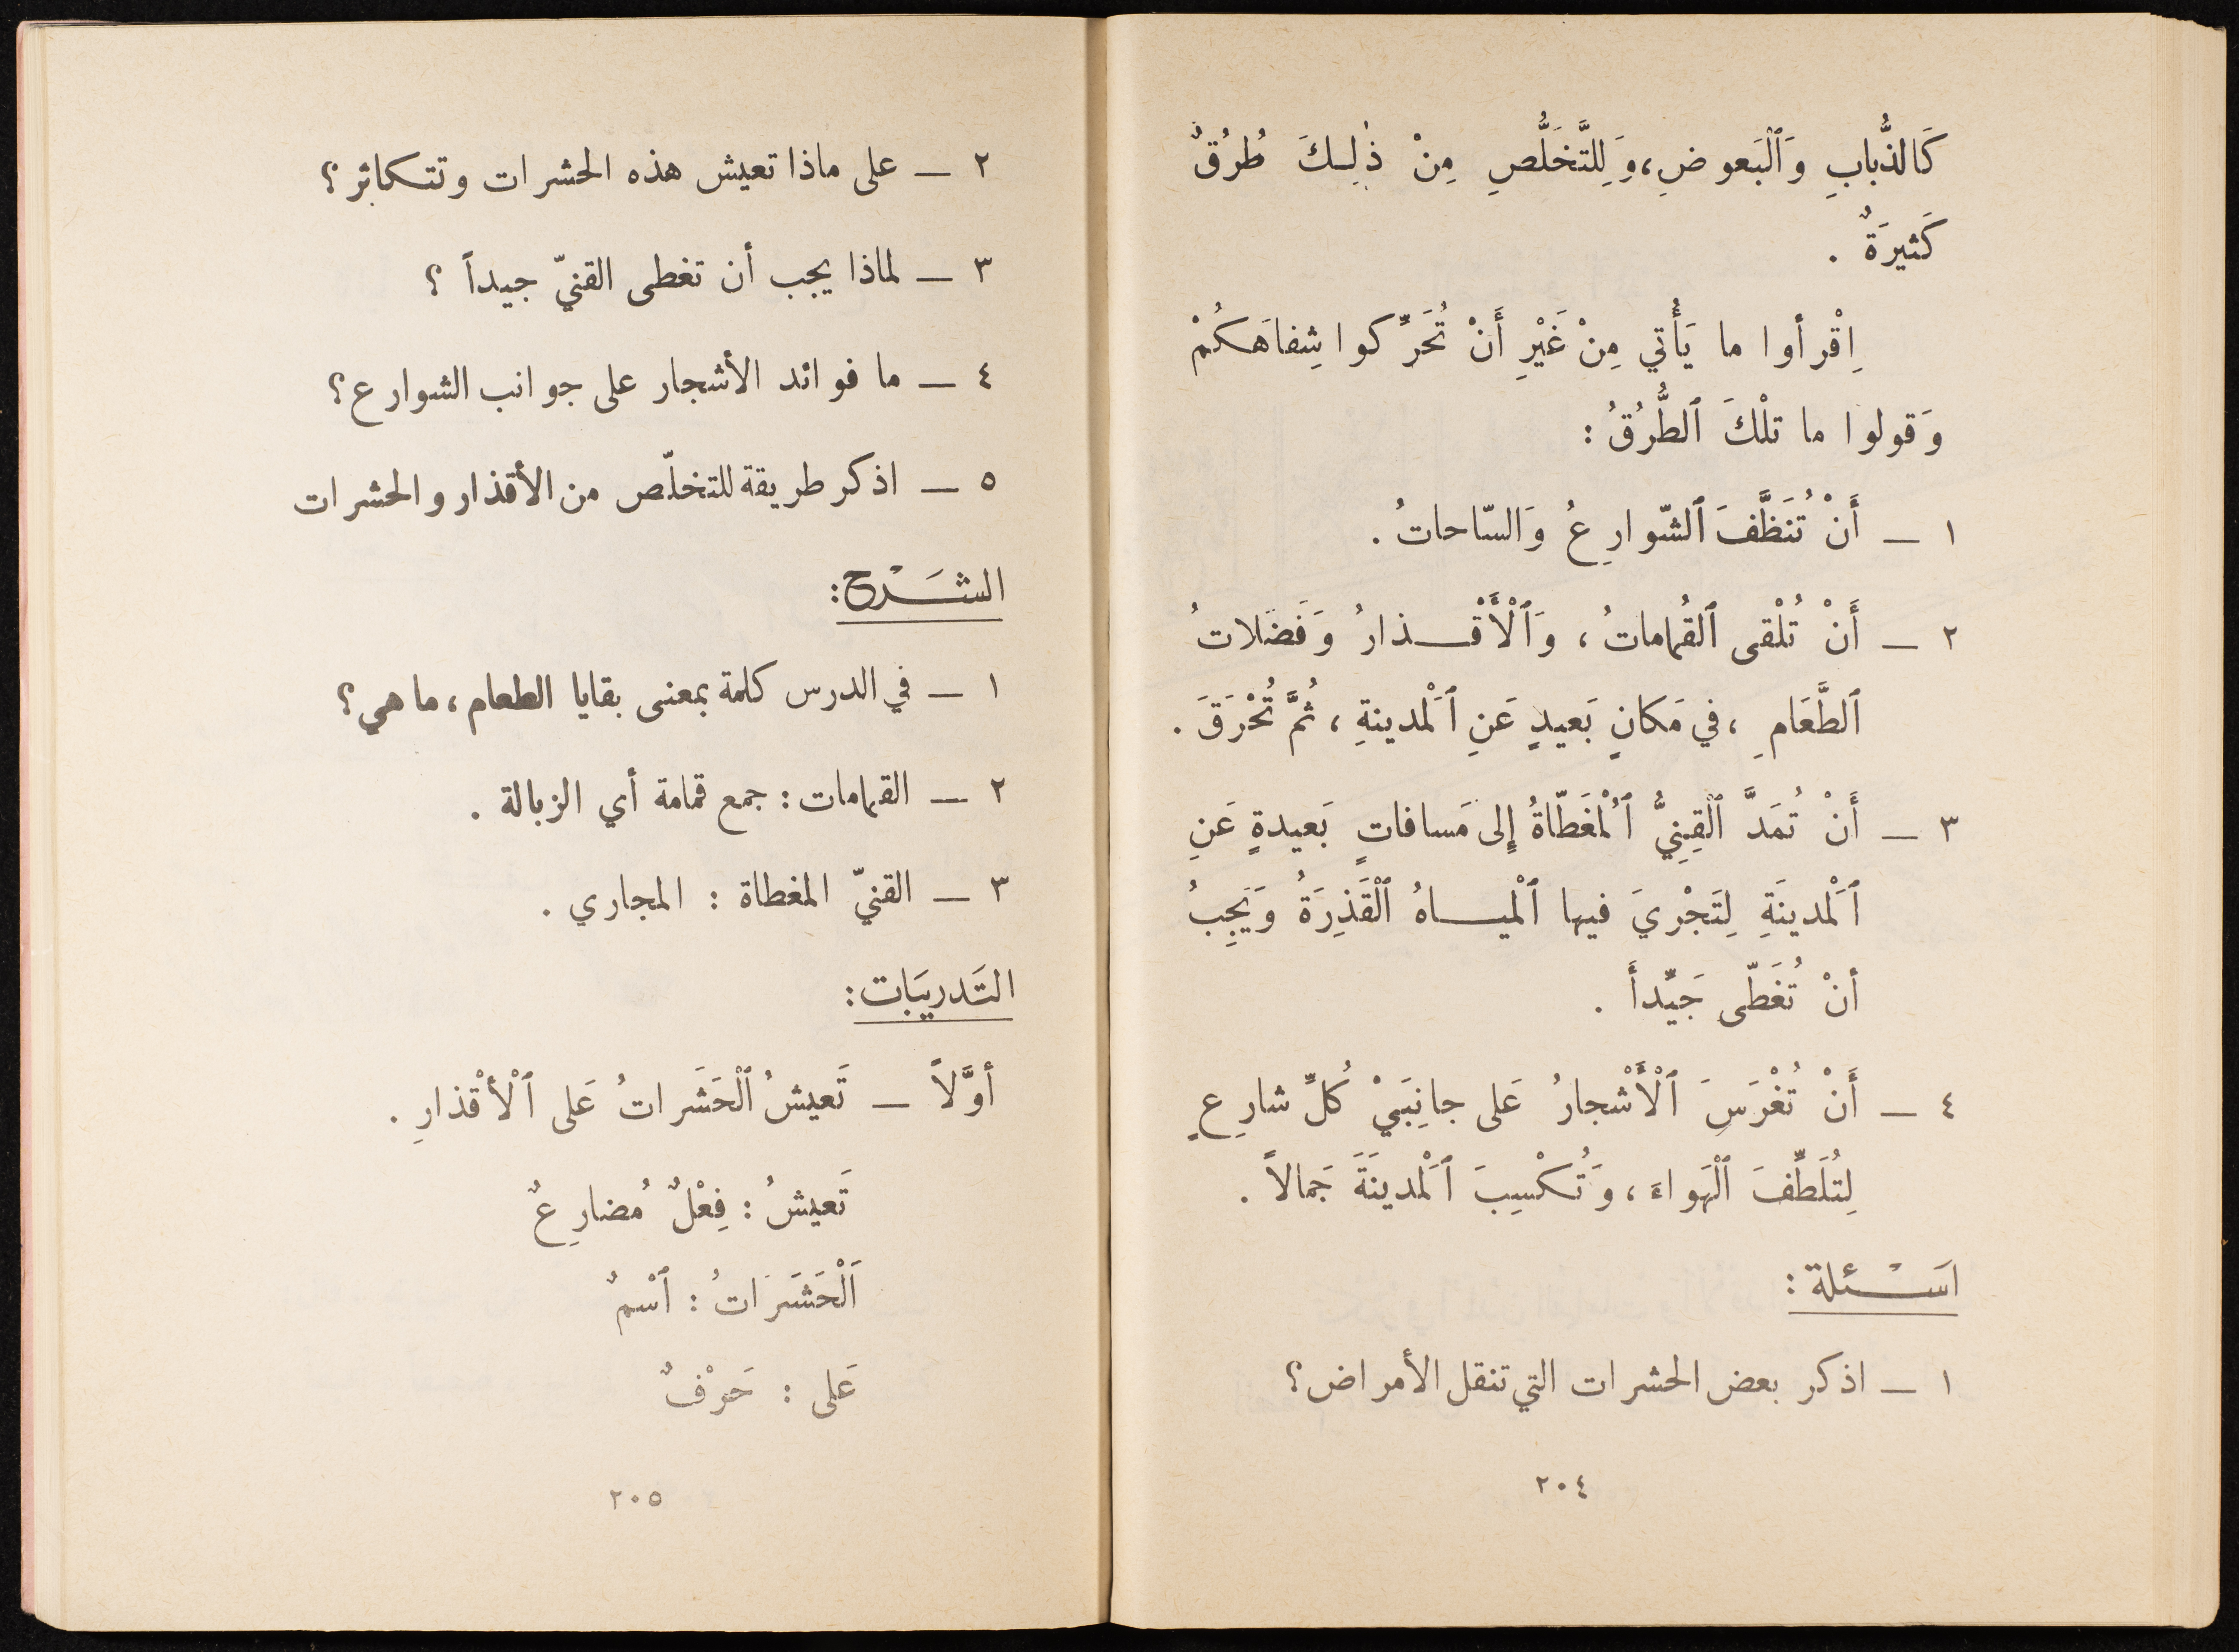 كَالذُّبابِ وَٱلْبَعوضِ، وَلِلتَّخَلُّصِ مِنْ ذٰلِكَ طُرُقٌ
كَثيرَةٌ .
اِقْرأوا ما يَأْتي مِنْ غَيْرِ أَنْ تُحَرِّكوا شِفاهَكُمْ
وَقولوا ما تلْكَ ٱلطُّرُقُ :
١ — أَنْ تُنَظَّفَ ٱلشّوارِعُ وَالسّاحاتُ .
٢ — أَنْ تُلْقى ٱلقُماماتُ ، وَٱلْأَقْذارُ وَفَضَلاتُ
ٱلطَّعَامِ ، في مَكانٍ بَعيدٍ عَنِ ٱلْمَدينةِ ، ثُمَّ تُحْرَقَ .
٣ — أَنْ تُمَدَّ ٱلْقِنِيُّ ٱلْمُغَطّاةُ إِلى مَسافاتٍ بَعيدةٍ عَنِ
ٱلْمَدينَةِ لِتَجْرِيَ فيها ٱلْمياهُ ٱلْقَذِرَةُ وَيَجِبُ
أنْ تُغَطّى جَيِّداً .
٤ — أَنْ تُغْرَسَ ٱلْأَشْجارُ عَلى جانِبَيْ كُلِّ شارِعٍ
لِتُلَطِّفَ ٱلْهَواءَ ، وَتُكْسِبَ ٱلْمَدينَةَ جَمالاً .
اسَْئلة :
١ — اذكر بعض الحشرات التي تنقل الأمراض ؟
٢٠٤
٢ — على ماذا تعيش هذه الحشرات وتتكاثر ؟
٣ — لماذا يجب أن تغطى القنيّ جيداً ؟
٤ — ما فوائد الأشجار على جوانب الشوارع ؟
٥ — اذكر طريقة للتخلّص من الأقذار والحشرات
الشَرْح :
١ — في الدرس كلمة بمعنى بقايا الطعام ، ما هي ؟
٢ — القمامات : جمع قمامة أي الزبالة .
٣ — القنيّ المغطاة : المجاري .
التَدريَبات :
أوَّلاً — تَعيشُ ٱلْحَشَراتُ عَلى ٱلْأقْذارِ .
تَعيشُ : فِعْلٌ مُضارِعٌ
اَلْحَشَرَاتُ : ٱسْمٌ
عَلى : حَرْفٌ
٢٠٥